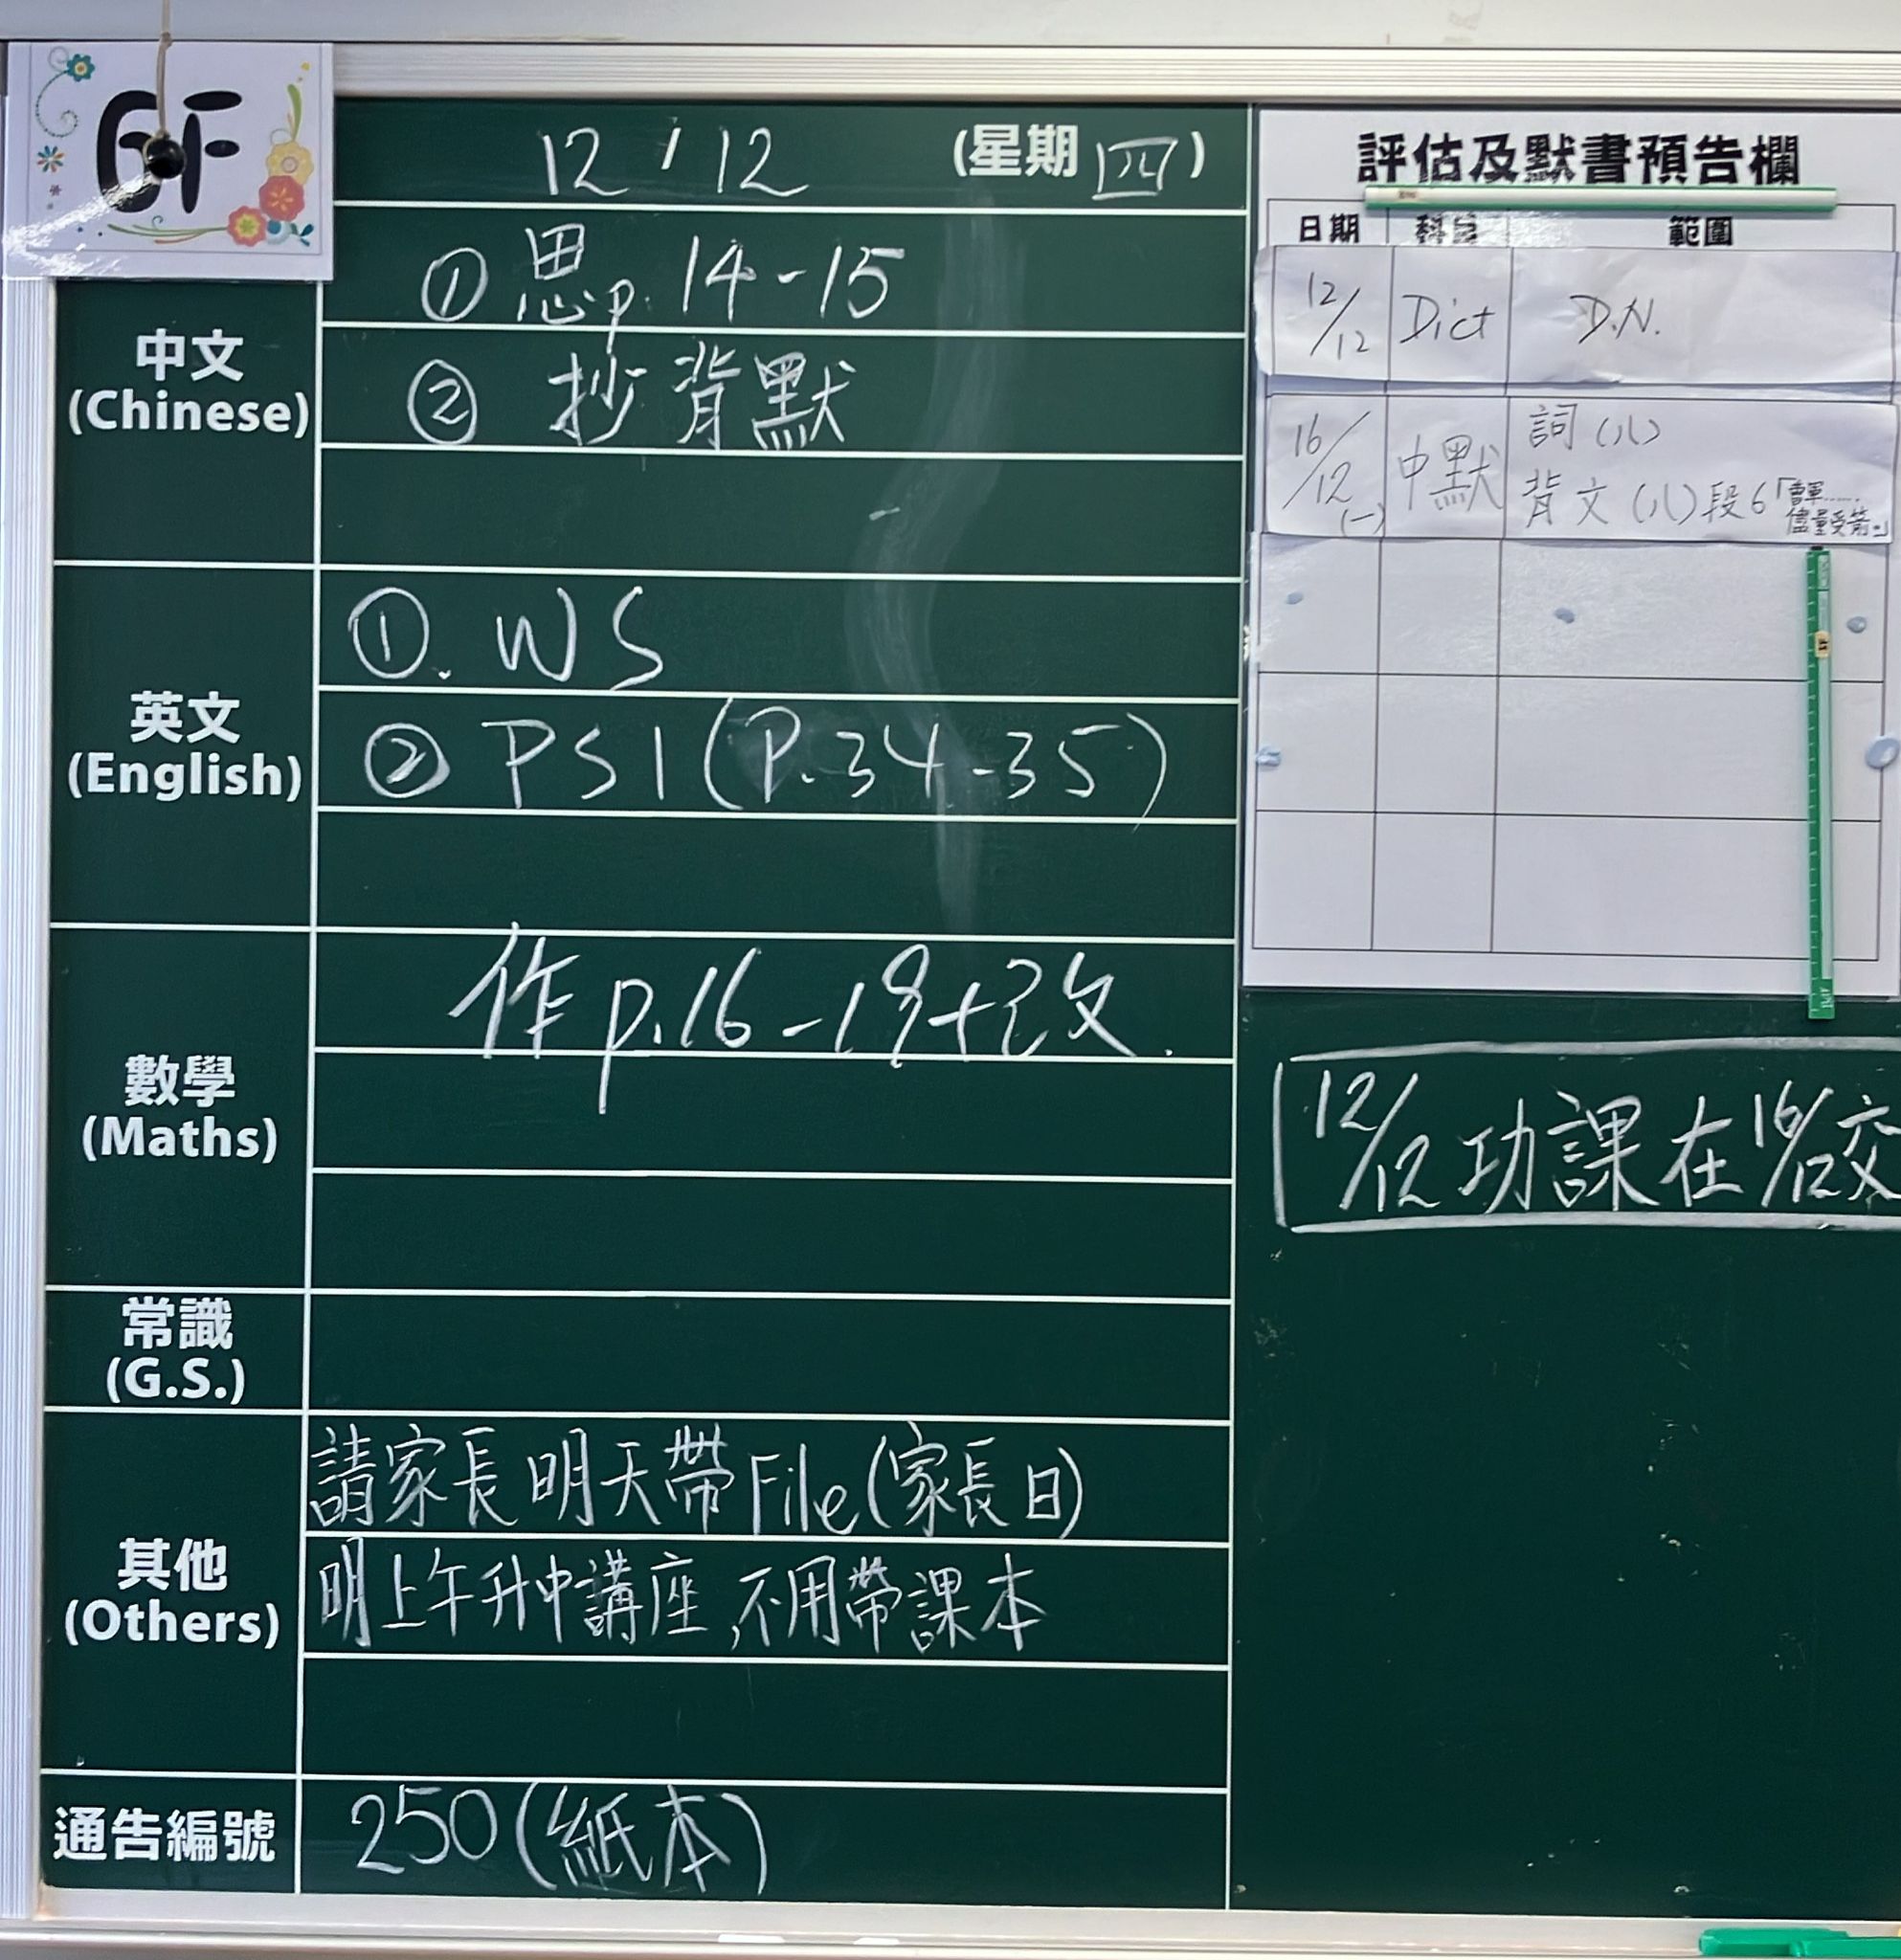 6F
12 / 12 (星期四)
中文
(Chinese)
① 思p. 14-15
② 抄背默
英文
(English)
①. WS
② PS1(P.34-35)
數學
(Maths)
作p.16-19+改.
常識
(G.S.)
其他
(Others)
請家長明天帶File(家長日)
明上午升中講座,不用帶課本
通告編號
250(紙本)
評估及默書預告欄
日期 科目 範圍
12/12 Dict D.N.
16/12 (一) 中默 詞(八)
背文(八)段6「曹軍……
儘量受箭。」
12/12 功課在16/12交